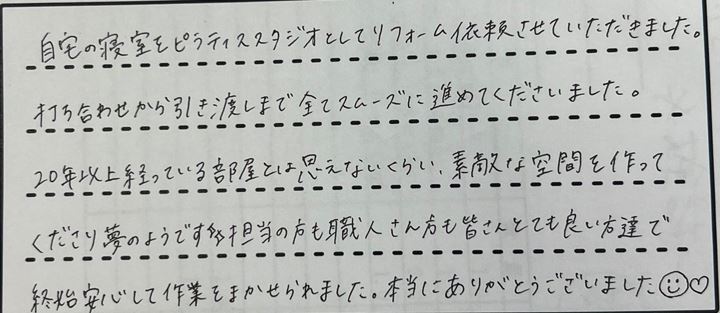 自宅の寝室をピラティススタジオとしてリフォーム依頼させていただきました。
打ち合わせから引き渡しまで全てスムーズに進めてくださいました。
20年以上経っている部屋とは思えないくらい、素敵な空間を作って
くださり夢のようです 担当の方も職人さん方も皆さんとても良い方達で
終始安心して作業をまかせられました。本当にありがとうございました☺♡